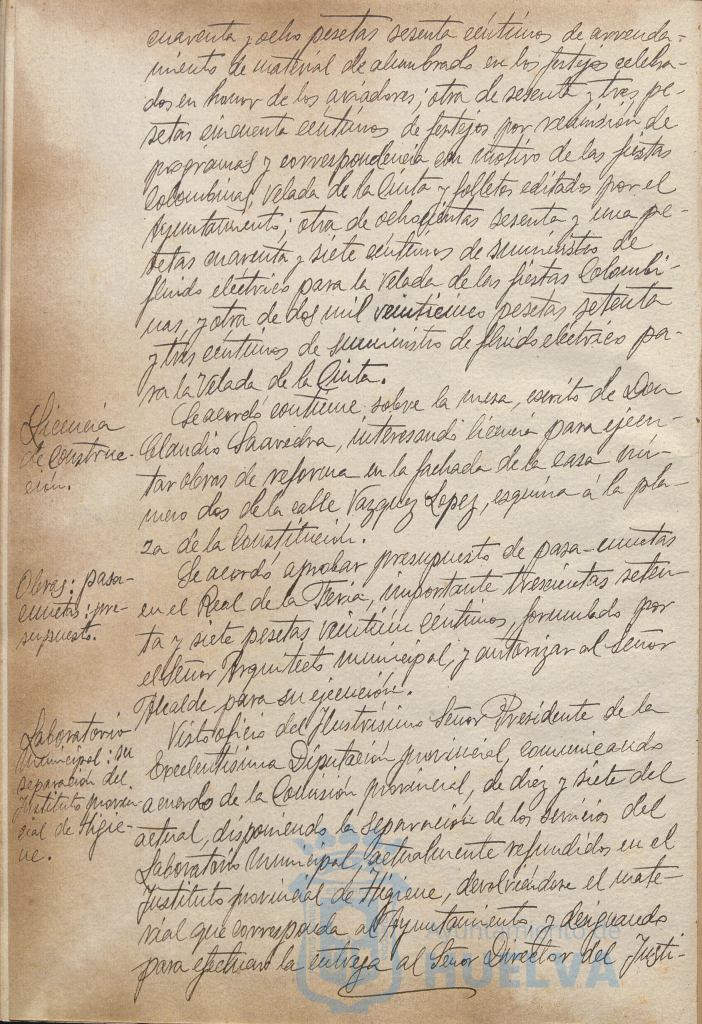 cuarenta y ocho pesetas sesenta céntimos de arrenda-
miento de material de alumbrado en los festejos celebra-
dos en honor de los aviadores; otra de sesenta y tres pe-
setas cincuenta céntimos de festejos por remisión de
programas y correspondencia con motivo de las fiestas
Colombinas, Velada de la Cinta y folletos editados por el
Ayuntamiento; otra de ochocientas sesenta y una pe-
setas cuarenta y siete céntimos de suministro de
fluido eléctrico para la Velada de las fiestas Colombi-
nas, y otra de dos mil veinticinco pesetas setenta
y tres céntimos de suministro de fluido eléctrico pa-
ra la Velada de la Cinta.
Licencia
de construc-
ción.
Se acordó continue, sobre la mesa, escrito de Don
Claudio Saavedra, interesando licencia para ejecu-
tar obras de reforma en la fachada de la casa nú-
mero dos de la calle Vazquez Lopez, esquina á la pla-
za de la Constitución.
Obras: pasa-
cunetas: pre-
supuesto.
Se acordó aprobar presupuesto de pasa-cunetas
en el Real de la Feria, importante trescientas seten-
ta y siete pesetas veintiun céntimos, formulado por
el Señor Arquitecto municipal, y autorizar al Señor
Alcalde para su ejecución.
Laboratorio
municipal: su
separación del
Instituto provin-
cial de Higie-
ne.
Visto oficio del Ilustrísimo Señor Presidente de la
Excelentísima Diputación provincial, comunicando
acuerdo de la Comisión provincial, de diez y siete del
actual, disponiendo la separación de los servicios del
Laboratorio municipal, actualmente refundidos en el
Instituto provincial de Higiene, devolviéndose el mate-
rial que corresponda al Ayuntamiento, y designando
para efectuar la entrega al Señor Director del Insti-
Ayuntamiento de
HUELVA